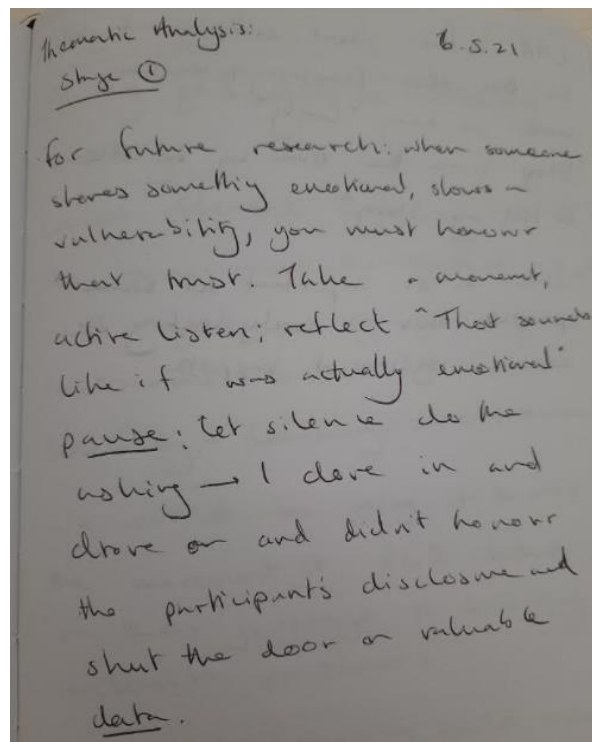 Thematic Analysis:
6.5.21
Stage ①
for future research: when someone
shares something emotional, shows a
vulnerability, you must honour
that trust. Take a moment,
active listen; reflect "That sounds
like it was actually emotional"
pause; let silence do the
asking → I dove in and
drove on and didn't honour
the participant's disclosure and
shut the door on valuable
data.